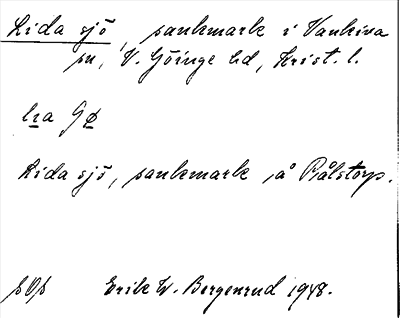 Lida sjö, sankmark i Vankiva
sn, V. Göinge hd, Krist. l.
Lida sjö, sankmark, å Pålstorp.
Erik W. Bergenrud 1948.